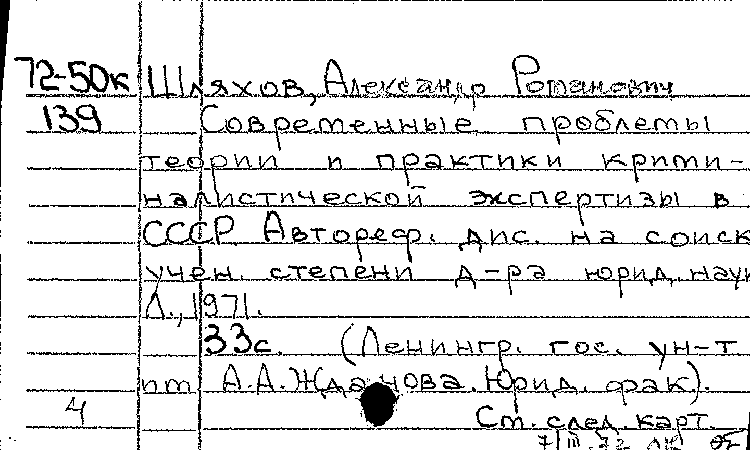 72-50к Шляхов, Александр Романович
139 Современные проблемы
теории и практики крими-
налистической экспертизы в
СССР Автореф. дис. на соиск
учен. степени д-ра юрид. наук
Л., 1971.
33с. (Ленингр. гос. ун-т
им А.А. Жданова. Юрид. фак).
4 Ст. след. карт.
7/III-72